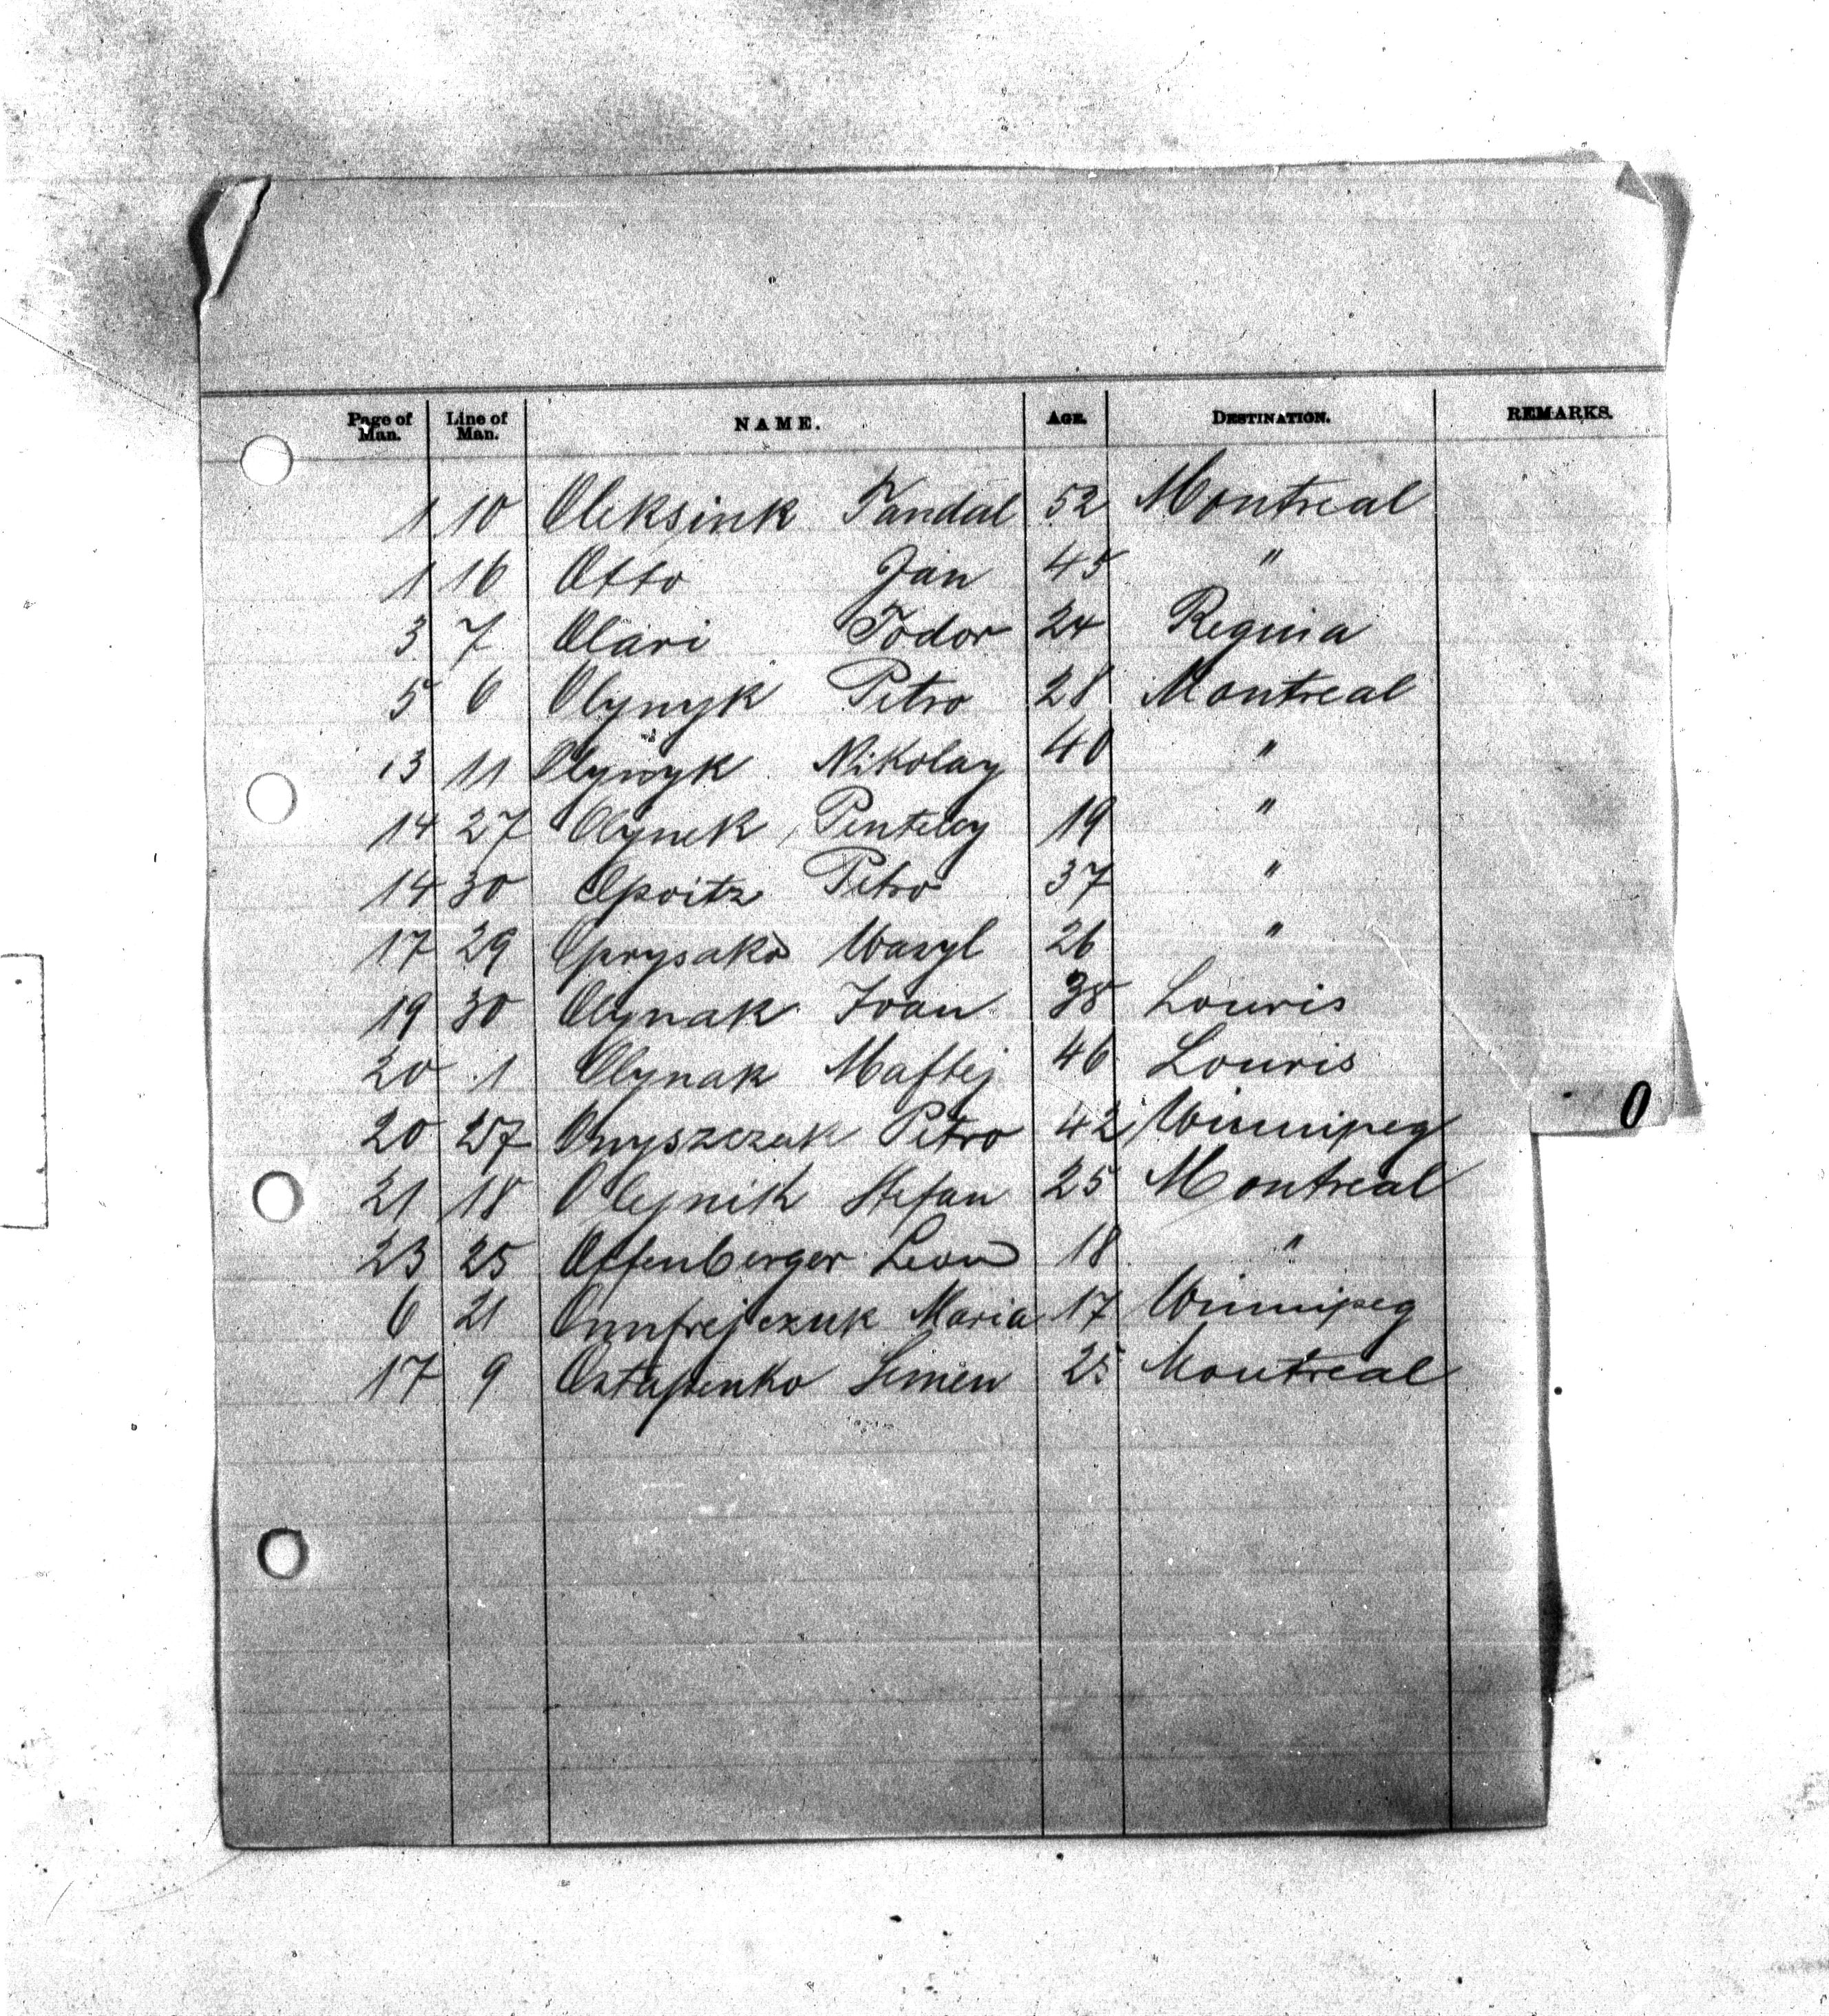 Page of Man. Line of Man. NAME. AGE. DESTINATION. REMARKS.
1 10 Oleksink Tandal 52 Montreal
1 16 Otto Jan 45 "
3 7 Olari Todor 24 Regina
5 6 Olynyk Petro 28 Montreal
13 11 Olynyk Nikolay 40 "
14 27 Olynek Penteley 19 "
14 30 Petro 37 "
17 29 Oprysako Wasyl 26 "
19 30 Olynak Ivan 38 Louris
20 1 Olynak Maftej 46 Louris
O
20 27 Onyszczuk Petro 42 Winnipeg
21 18 Olejnik Stefan 25 Montreal
23 25 Offenberger Leon 18 "
6 21 Onufrejczuk Maria 17 Winnipeg
17 9 Ostapenko Semen 25 Montreal